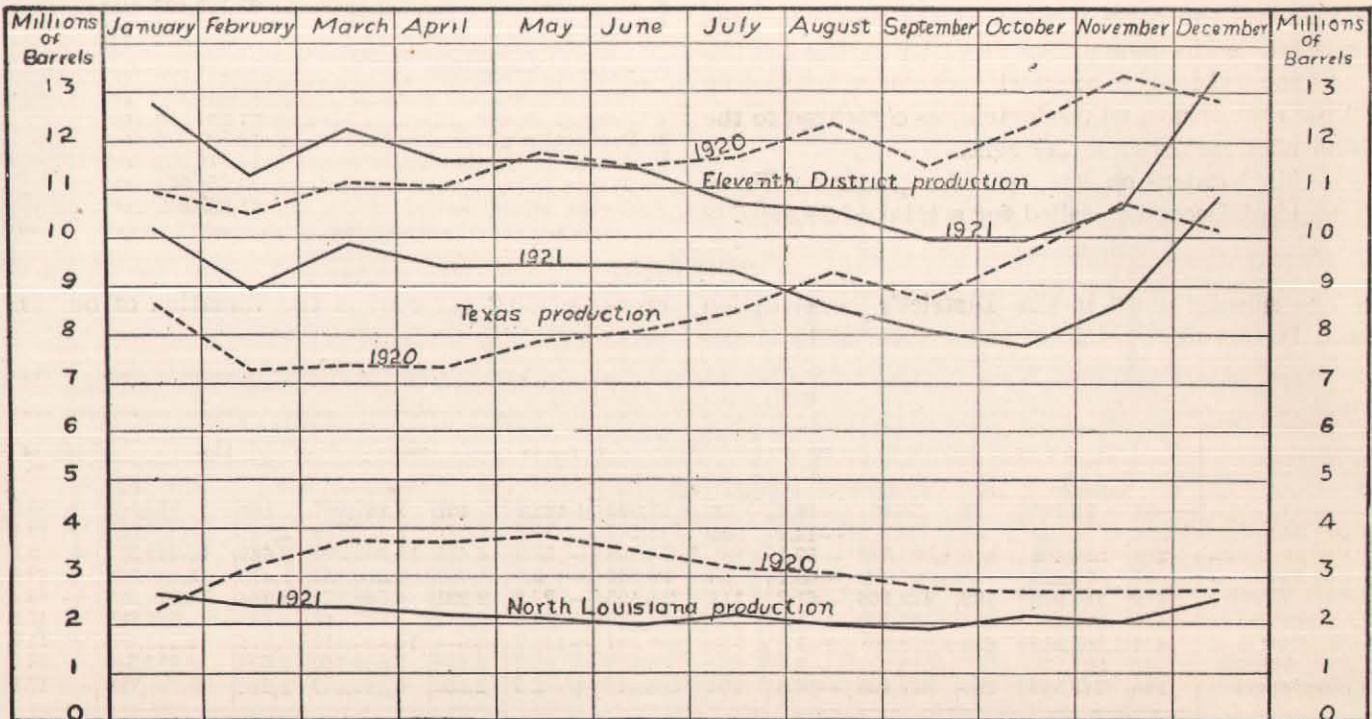 Millions of Barrels January February March April May June July August September October November December Millions of Barrels
13 13
12 12
1920
11 11
Eleventh District production
10 1921 10
1921
9 9
Texas production
8 8
1920
7 7
6 6
5 5
4 4
3 1920 3
1921 North Louisiana production
2 2
1 1
0 0